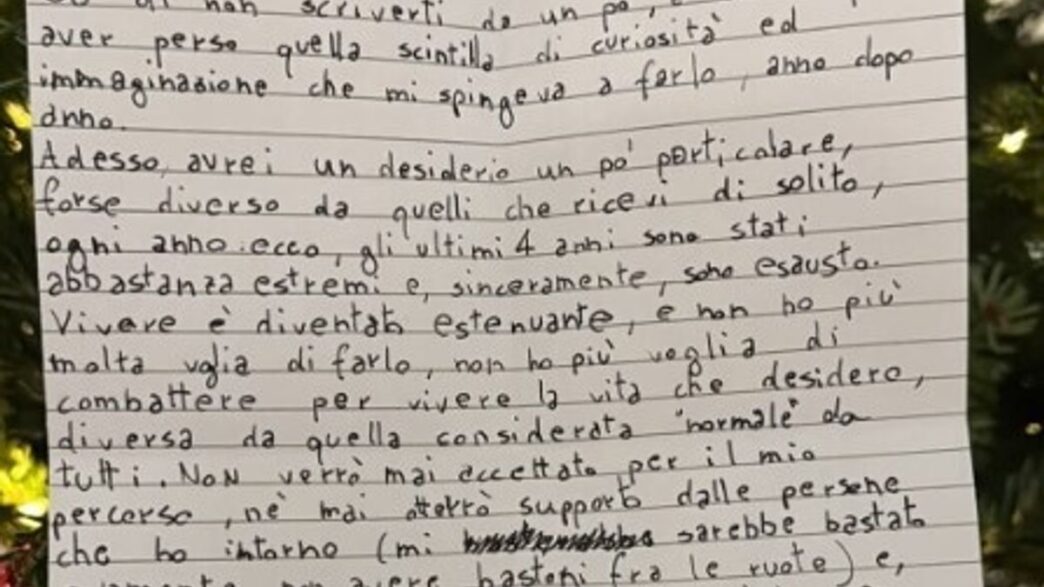 di non scriverti da un po',
aver perso quella scintilla di curiosità ed
immaginazione che mi spingeva a farlo, anno dopo
anno.
Adesso, avrei un desiderio un po' particolare,
forse diverso da quelli che ricevi di solito,
ogni anno. ecco, gli ultimi 4 anni sono stati
abbastanza estremi e, sinceramente, sono esausto.
Vivere è diventato estenuante, e non ho più
molta voglia di farlo, non ho più voglia di
combattere per vivere la vita che desidero,
diversa da quella considerata "normale" da
tutti. NON verrò mai accettato per il mio
percorso, nè mai otterrò supporto dalle persone
che ho intorno (mi sarebbe bastato
avere bastoni fra le ruote) e,